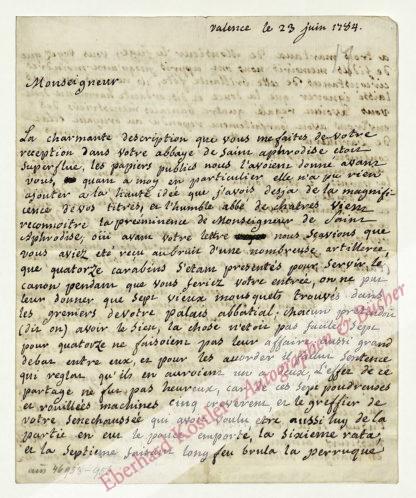 valence le 23 juin 1784.
Monseigneur
La charmante description que vous me faites de votre
reception dans votre abbaye de saint aphrodise etoit
superflue, les papiers publics nous l'avoient donné avant
vous, quant a moy en particulier elle n'a pu rien
ajouter a la haute idée que j'avois desja de la magnifi-
cience de vos titres, et l'humble abbé de chatres vient
reconnoitre la preiminence de Monseigneur de saint
Aphrodise, oui avant votre lettre nous sçavions que
vous aviez eté reçu au bruit d'une nombreuse artillerie
que quatorze carabins s'etant presentés pour servir le
canon pendant que vous feriez votre entrée, on ne put
leur donner que sept vieux mousquets trouvés dans
les greniers de votre palais abbatial; chacun pretendoit
(dit on) avoir le sien, la chose n'etoit pas facile, sept
pour quatorze ne faisoient pas leur affaire aussi grand
debat entre eux, et pour les accorder il fallut sentence
qui regla qu'ils en auroient un a deux, l'effet de ce
partage ne fut pas heureux, car de ces sept poudreuses
et rouillées machines cinq creverent, et le greffier de
votre senechaussée qui avoit voulu etre aussi luy de la
partie en eut le pouce emporté, la sixieme rata,
et la septieme faisant long feu brula la perruque
Eberhard Köstler Autographen & Bücher